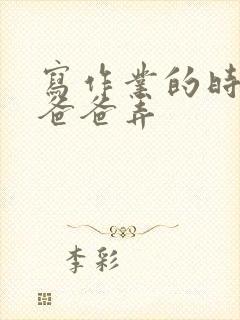 寫作業的時
爸爸弄
李彩